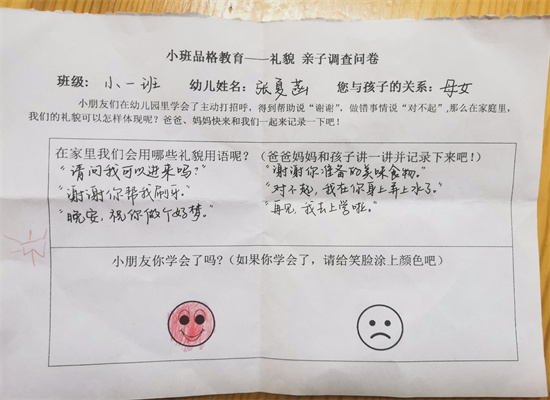 小班品格教育——礼貌 亲子调查问卷
班级: 小一班 幼儿姓名: 张夏菡 您与孩子的关系: 母女
小朋友们在幼儿园里学会了主动打招呼，得到帮助说“谢谢”，做错事情说“对不起”,那么在家庭里，
我们的礼貌可以怎样体现呢？爸爸、妈妈快来和我们一起来记录一下吧！
在家里我们会用哪些礼貌用语呢？（爸爸妈妈和孩子讲一讲并记录下来吧！）
“请问我可以进来吗？” “谢谢你准备的美味食物。”
“谢谢你帮我刷牙。” “对不起，我在你身上弄上水了。”
“晚安，祝你做个好梦。” “再见，我去上学啦。”
小朋友你学会了吗？（如果你学会了，请给笑脸涂上颜色吧）